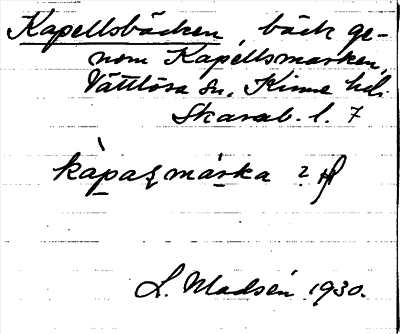 Kapellsbäcken, bäck ge-
nom Kapellsmarken,
Vättlösa sn, Kinne hd.
Skarab. l. 7
kapaʂmarka ?
L. Madsén 1930.